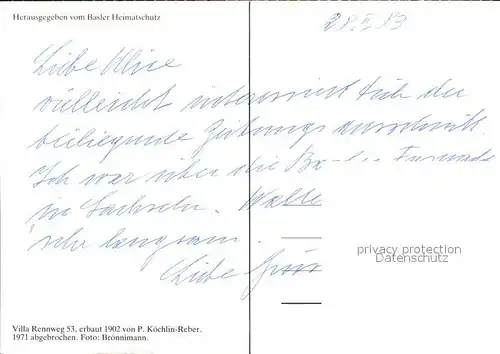 Herausgegeben vom Basler Heimatschutz
Liebe Alice
vielleicht interessiert Dich der
beiliegende Zeitungsausschnitt.
Ich war über die
in Sachseln.
sehr langsam.
Liebe
privacy protection
Datenschutz
Villa Rennweg 53, erbaut 1902 von P. Köchlin-Reber.
1971 abgebrochen. Foto: Brönnimann.